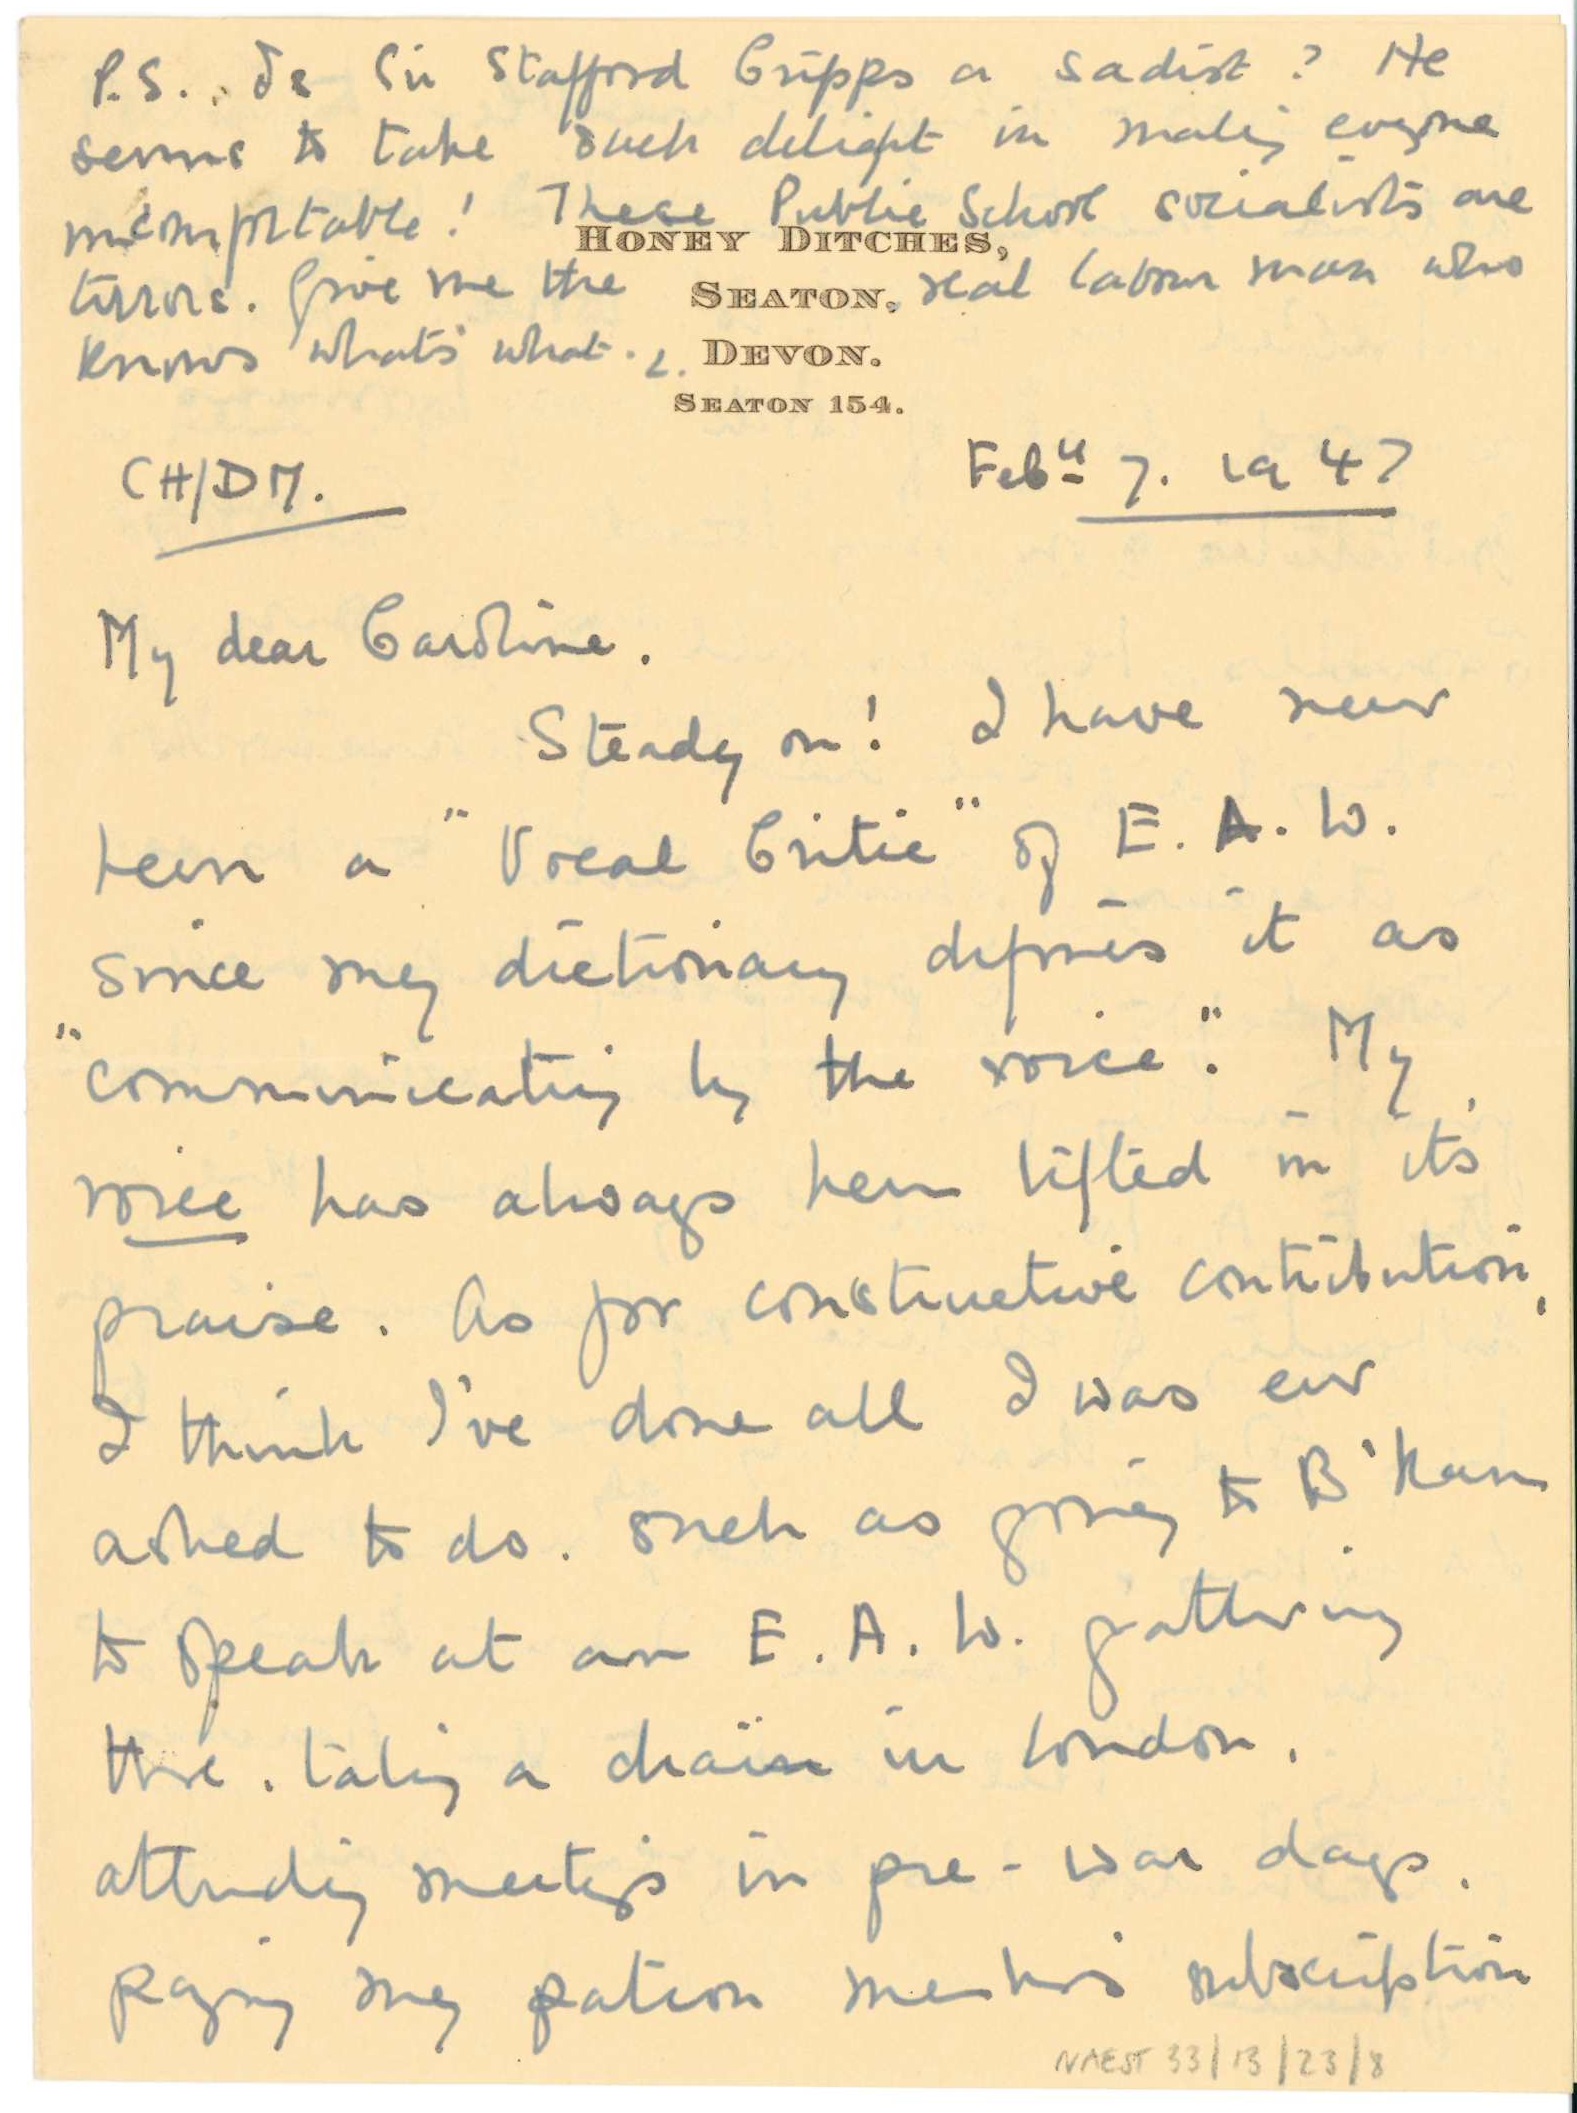 P.S. Is Sir Stafford Cripps a sadist? He
seems to take such delight in making everyone
uncomfortable! These Public School socialists are
HONEY DITCHES,
terrors. Give me the real labour man who
SEATON,
knows what's what.
DEVON.
SEATON 154.
CH/DM.
Feby 7. 1947
My dear Caroline.
Steady on! I have never
been a "Vocal Critic" of E.A.W.
since my dictionary defines it as
"communicating by the voice". My
voice has always been lifted in its
praise. As for constructive contribution,
I think I've done all I was ever
asked to do. such as going to B'ham
to speak at an E.A.W. gathering
there. taking a chair in London.
attending meetings in pre-war days.
paying my patron member's subscription
NAEST 33/13/23/8